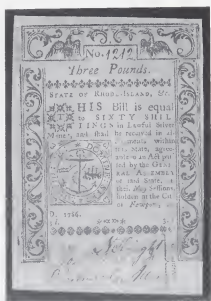 No. 1212
Three Pounds.
STATE OF RHODE-ISLAND, &c.
THIS Bill is equal
to SIXTY SHIL-
LINGS in Lawful Silver
Money, and shall be received in all
Payments within
this State, agree-
able to an Act pas-
sed by the GENE-
RAL ASSEMBLY
of said State, at
their May Session,
holden at the City
of Newport,
D. 1786.